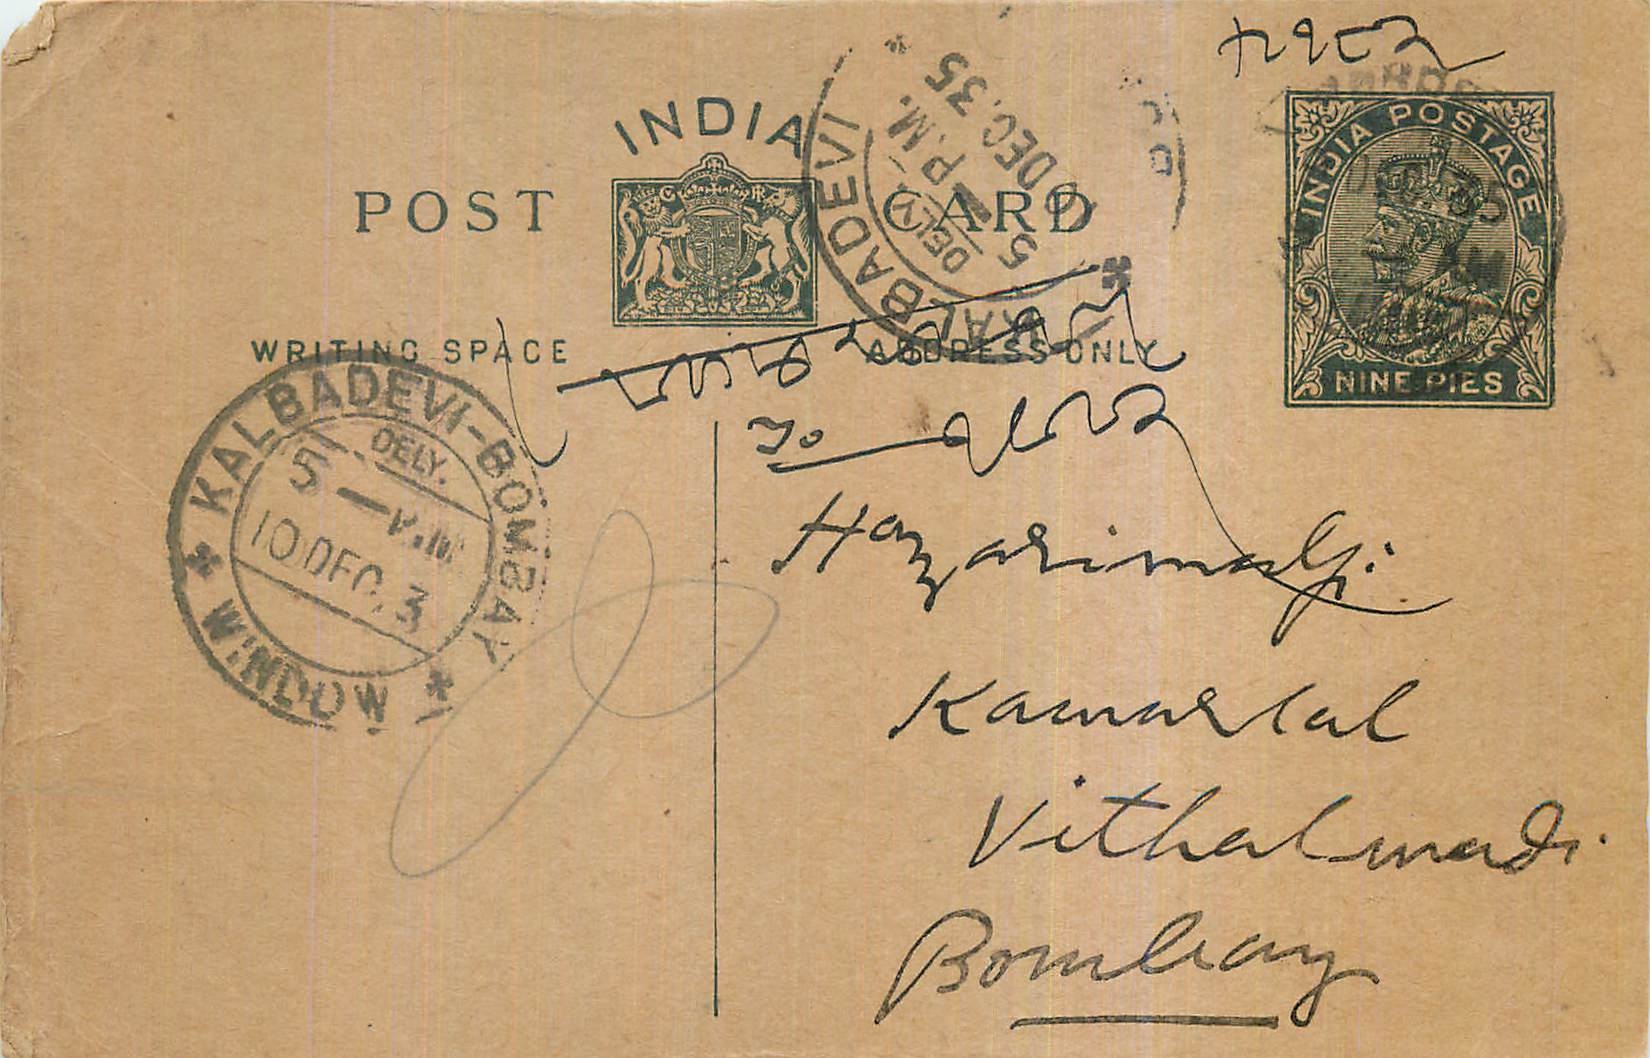 INDIA
POST CARD
INDIA POSTAGE
NINE PIES
WRITING SPACE
ADDRESS ONLY
KALBADEVI
DELY.
5 P.M.
DEC. 35
KALBADEVI-BOMBAY
DELY.
5 - P.M
10 DEC. 3
WINDOW
To
Hazarimalji
Vithalwadi.
Bombay